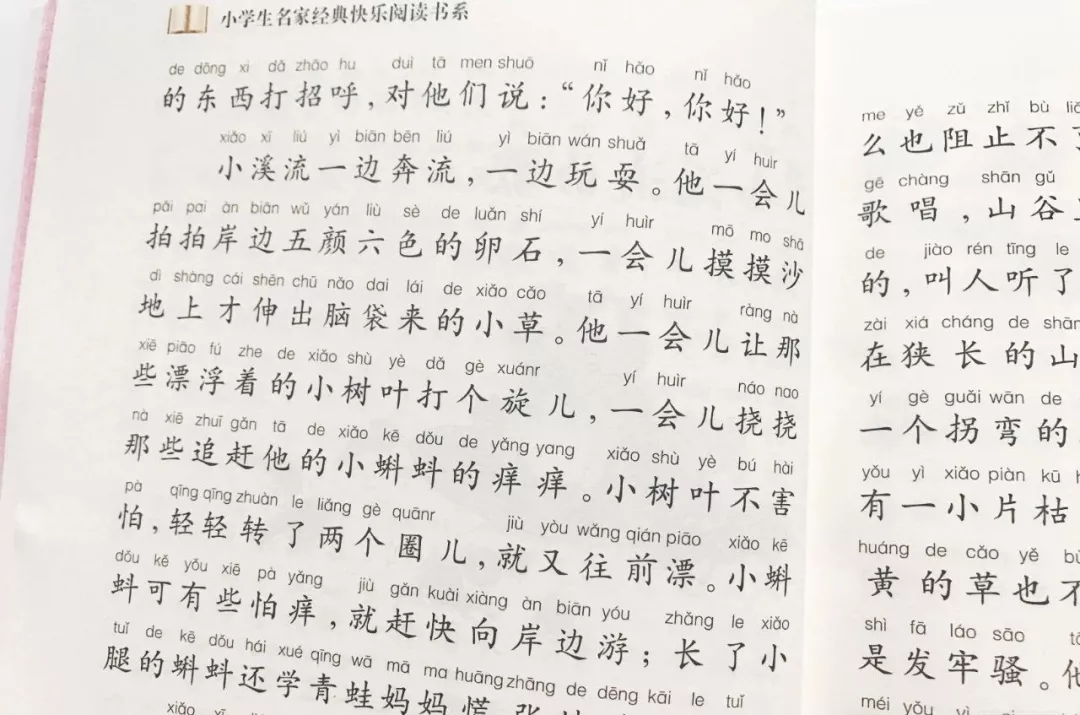 小学生名家经典快乐阅读书系
de dōng xi dǎ zhāo hu duì tā men shuō nǐ hǎo nǐ hǎo
的东西打招呼，对他们说：“你好，你好！”
xiǎo xī liú yì biān bēn liú yì biān wán shuǎ tā yí huìr
小溪流一边奔流，一边玩耍。他一会儿
pāi pai àn biān wǔ yán liù sè de luǎn shí yí huìr mō mo shā
拍拍岸边五颜六色的卵石，一会儿摸摸沙
dì shàng cái shēn chū nǎo dai lái de xiǎo cǎo tā yí huìr ràng nà
地上才伸出脑袋来的小草。他一会儿让那
xiē piāo fú zhe de xiǎo shù yè dǎ gè xuánr yí huìr náo nao
些漂浮着的小树叶打个旋儿，一会儿挠挠
nà xiē zhuī gǎn tā de xiǎo kē dǒu de yǎng yang xiǎo shù yè bú hài
那些追赶他的小蝌蚪的痒痒。小树叶不害
pà qīng qīng zhuàn le liǎng gè quānr jiù yòu wǎng qián piāo xiǎo kē
怕，轻轻转了两个圈儿，就又往前漂。小蝌
dǒu kě yǒu xiē pà yǎng jiù gǎn kuài xiàng àn biān yóu zhǎng le xiǎo
蚪可有些怕痒，就赶快向岸边游；长了小
tuǐ de kē dǒu hái xué qīng wā mā ma huāng zhāng de dēng kāi le tuǐ
腿的蝌蚪还学青蛙妈妈慌张
xiǎo xī
me yě zǔ zhǐ bù
么也阻止不了
gē chàng shān gǔ
歌唱，山谷
de jiào rén tīng le
的，叫人听了
zài xiá cháng de shān
在狭长的山
yí gè guǎi wān de
一个拐弯的
yǒu yì xiǎo piàn kū
有一小片枯
huáng de cǎo yě
黄的草也不
shì fā láo sāo
是发牢骚。
méi yǒu yì